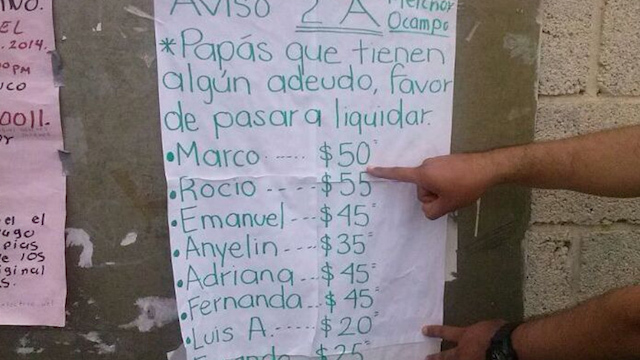 AVISO 2 A Melchor
Ocampo
*Papás que tienen
algún adeudo, favor
de pasar a liquidar.
•Marco ----- $50
•Rocio ---- $55
•Emanuel ---- $45
•Anyelin --- $35
•Adriana ... $45
•Fernanda... $45
•Luis A. ----- $20
$25
EL
.2014.
PM
0011.
el el
ginal